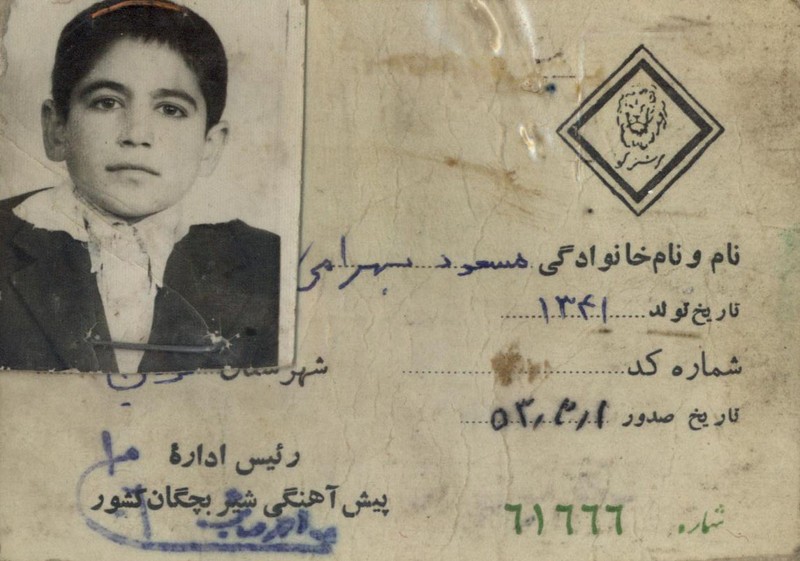 نام و نام خانوادگی مسعود بهرامی
تاریخ تولد ۱۳۴۱
شماره کد
شهرستان
تاریخ صدور
رئیس ادارهٔ
پیش آهنگی شیر بچگان کشور
شماره ۶۱۶۶۶